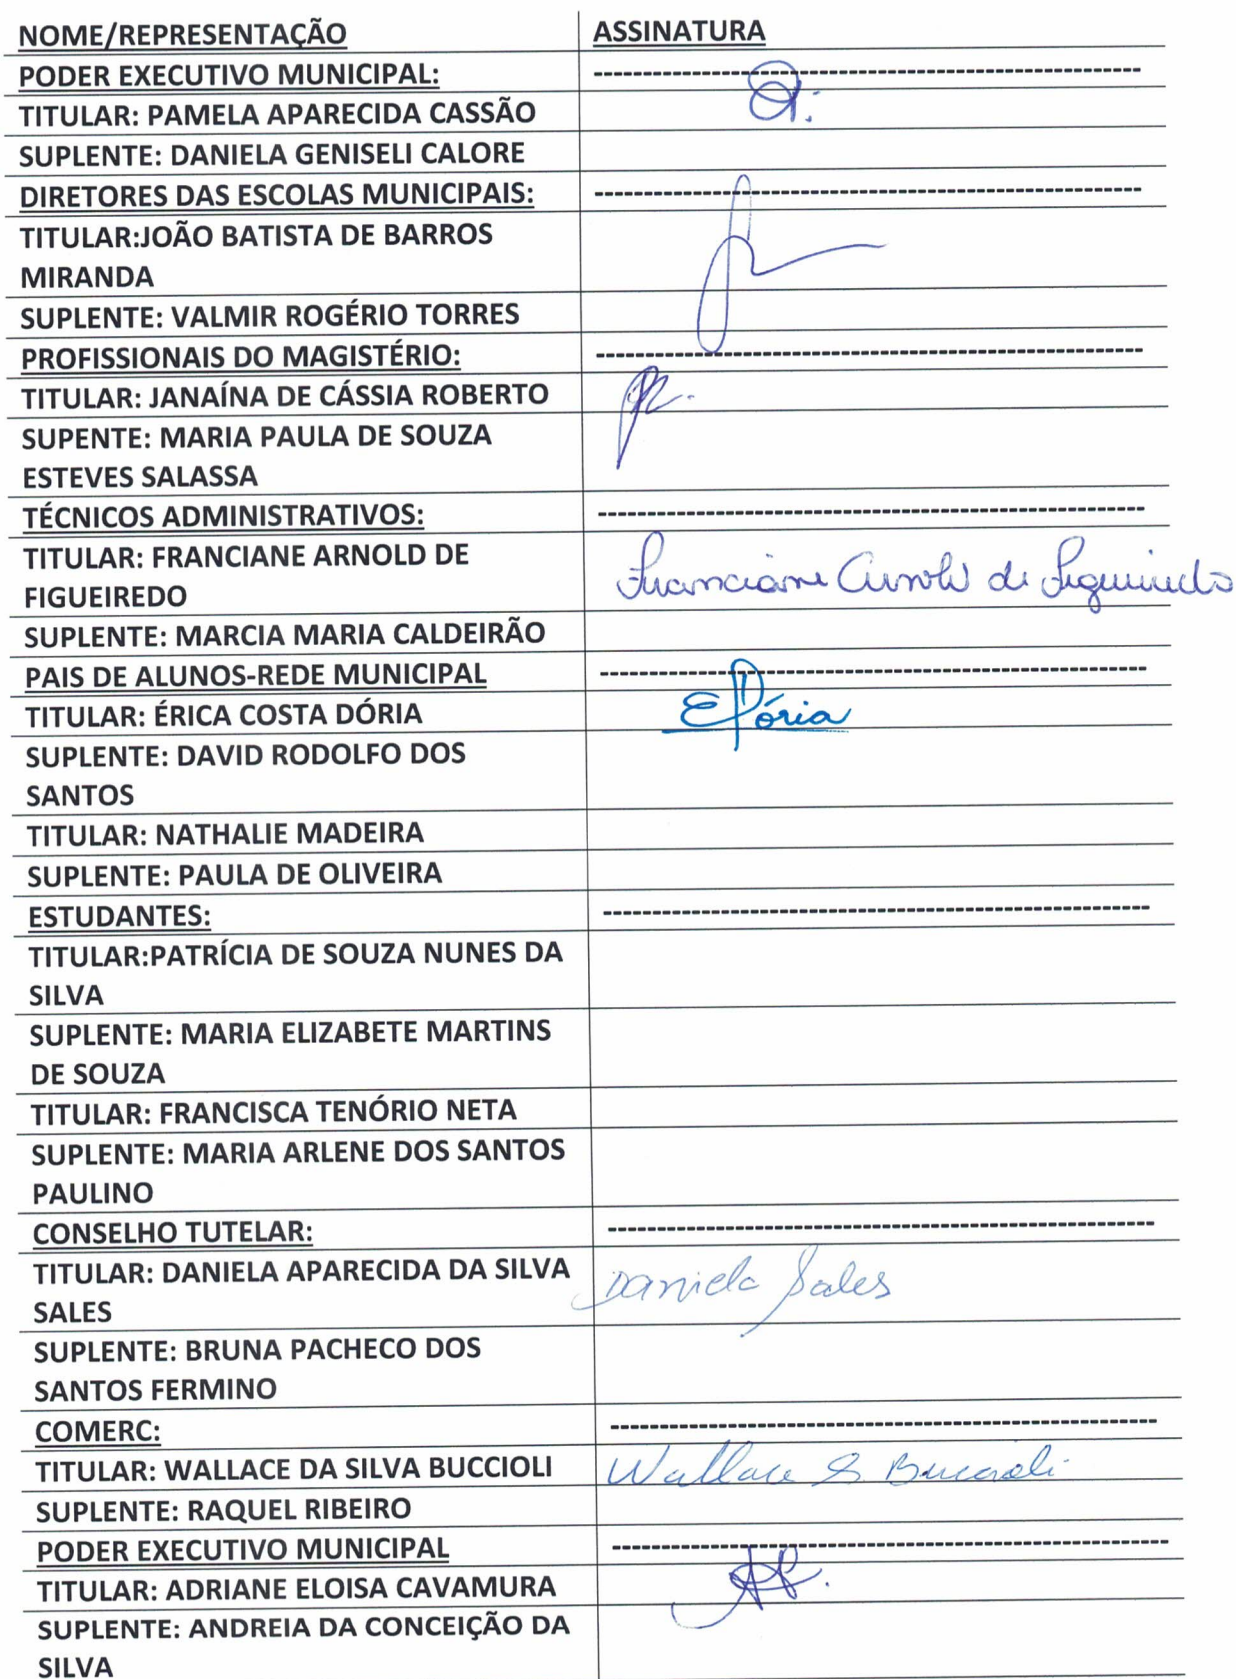 NOME/REPRESENTAÇÃO ASSINATURA
PODER EXECUTIVO MUNICIPAL: -------------------------------------------------------
TITULAR: PAMELA APARECIDA CASSÃO
SUPLENTE: DANIELA GENISELI CALORE
DIRETORES DAS ESCOLAS MUNICIPAIS: -------------------------------------------------------
TITULAR:JOÃO BATISTA DE BARROS
MIRANDA
SUPLENTE: VALMIR ROGÉRIO TORRES
PROFISSIONAIS DO MAGISTÉRIO: -------------------------------------------------------
TITULAR: JANAÍNA DE CÁSSIA ROBERTO
SUPENTE: MARIA PAULA DE SOUZA
ESTEVES SALASSA
TÉCNICOS ADMINISTRATIVOS: -------------------------------------------------------
TITULAR: FRANCIANE ARNOLD DE
FIGUEIREDO Franciane Arnold de Figueiredo
SUPLENTE: MARCIA MARIA CALDEIRÃO
PAIS DE ALUNOS-REDE MUNICIPAL -------------------------------------------------------
TITULAR: ÉRICA COSTA DÓRIA EDória
SUPLENTE: DAVID RODOLFO DOS
SANTOS
TITULAR: NATHALIE MADEIRA
SUPLENTE: PAULA DE OLIVEIRA
ESTUDANTES: -------------------------------------------------------
TITULAR:PATRÍCIA DE SOUZA NUNES DA
SILVA
SUPLENTE: MARIA ELIZABETE MARTINS
DE SOUZA
TITULAR: FRANCISCA TENÓRIO NETA
SUPLENTE: MARIA ARLENE DOS SANTOS
PAULINO
CONSELHO TUTELAR: -------------------------------------------------------
TITULAR: DANIELA APARECIDA DA SILVA Daniela Sales
SALES
SUPLENTE: BRUNA PACHECO DOS
SANTOS FERMINO
COMERC: -------------------------------------------------------
TITULAR: WALLACE DA SILVA BUCCIOLI Wallace S. Buccioli
SUPLENTE: RAQUEL RIBEIRO
PODER EXECUTIVO MUNICIPAL --------------------------------------------------------
TITULAR: ADRIANE ELOISA CAVAMURA
SUPLENTE: ANDREIA DA CONCEIÇÃO DA
SILVA